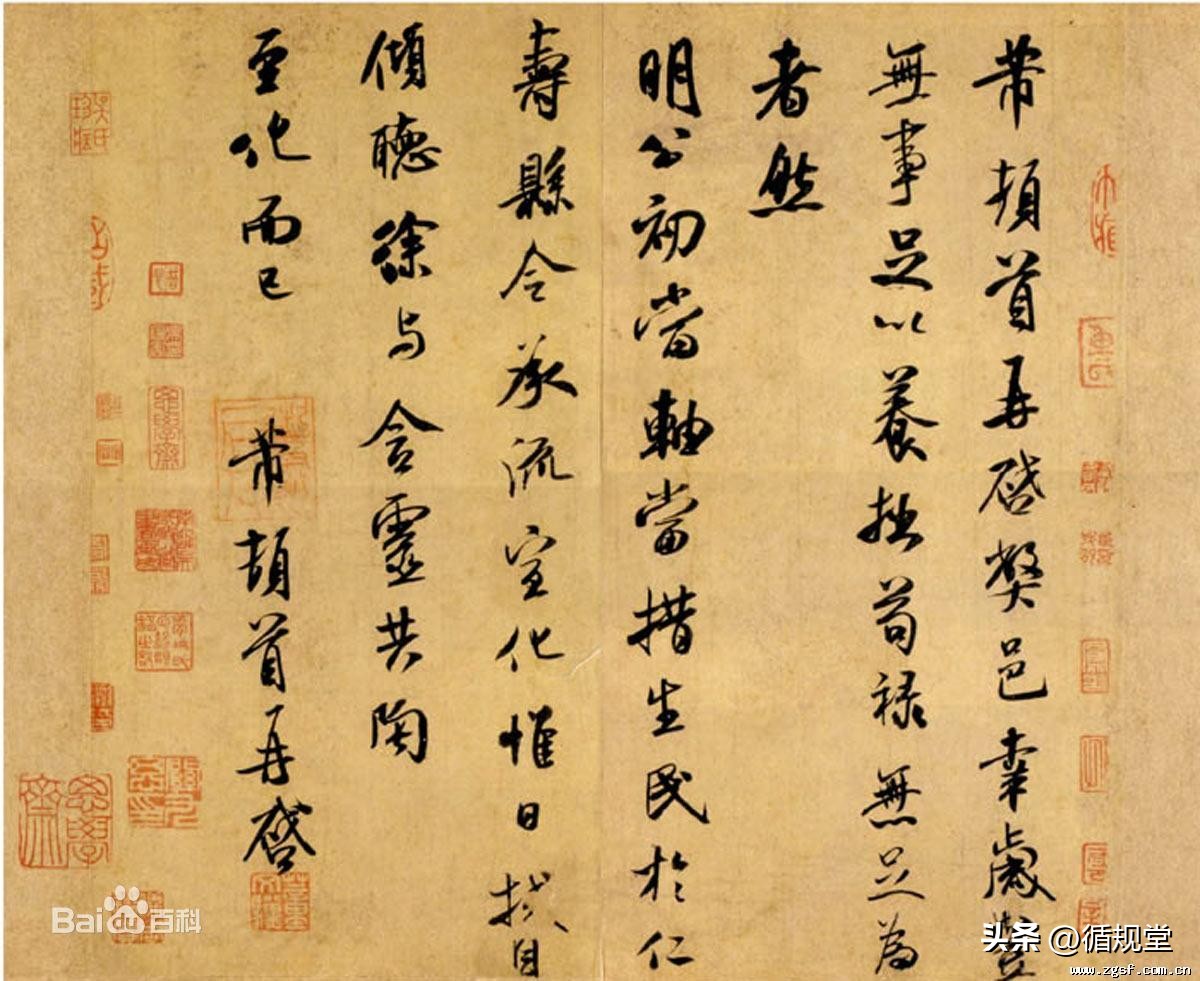 芾頓首再啓弊邑幸歲豐
無事足以養拙苟禄無足為
者然
明公初當軸當措生民於仁
壽縣令承流宣化惟日拭目
傾聽徐与含靈共陶
至化而已 芾頓首再啓
Baidu百科
头条 @循规堂
www.zgsf.com.cn